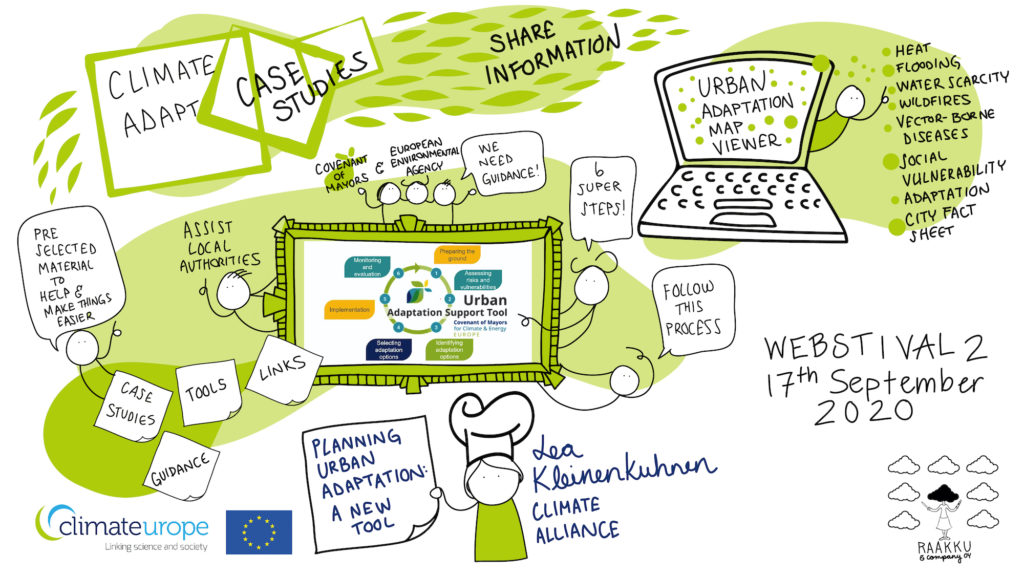 CLIMATE
ADAPT
CASE
STUDIES
SHARE
INFORMATION
URBAN
ADAPTATION
MAP
VIEWER
HEAT
FLOODING
WATER SCARCITY
WILDFIRES
VECTOR-BORNE
DISEASES
SOCIAL
VULNERABILITY
ADAPTATION
CITY FACT
SHEET
COVENANT
OF
MAYORS
&
EUROPEAN
ENVIRONMENTAL
AGENCY
WE
NEED
GUIDANCE!
6
SUPER
STEPS!
PRE
SELECTED
MATERIAL
TO
HELP &
MAKE THINGS
EASIER
ASSIST
LOCAL
AUTHORITIES
Monitoring
and
evaluation
Preparing the
ground
Assessing
risks and
vulnerabilities
Implementation
6
1
5
2
4
3
Urban
Adaptation Support Tool
Covenant of Mayors
for Climate & Energy
EUROPE
Selecting
adaptation
options
Identifying
adaptation
options
FOLLOW
THIS
PROCESS
CASE
STUDIES
TOOLS
LINKS
GUIDANCE
WEBSTIVAL 2
17th September
2020
PLANNING
URBAN
ADAPTATION:
A NEW
TOOL
Lea
Kleinenkuhnen
CLIMATE
ALLIANCE
climateurope
Linking science and society
RAAKKU
& company OY